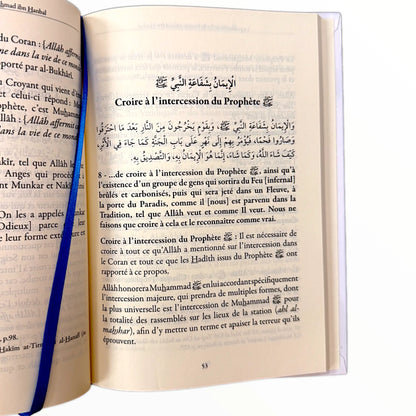 hmad ibn Hanbal
du Coran : {Allâh affermit
me dans la vie de ce mona
porté par al-Bukhârî.
Croyant qui vient
et celui-ci répond :
ophète, c'est Muham
Allâh affermit ce
la vie de ce mona
kîr, tel Allâh
Anges qui procède
nt Munkar et Nakî
On les a appelés Munkar
Odieux] parce
e leur forme extér
p.98.
Hakîm at-Tir
al-Hanafî (m
الْإِيمَانُ بِشَفَاعَةِ النَّبِيِّ ﷺ
Croire à l'intercession du Prophète ﷺ
وَالْإِيمَانُ بِشَفَاعَةِ النَّبِيِّ ﷺ، وَبِقَوْمٍ يَخْرُجُونَ مِنَ النَّارِ بَعْدَ مَا احْتَرَقُوا
وَصَارُوا فَحْمًا، فَيُؤْمَرُ بِهِمْ إِلَى نَهْرٍ عَلَى بَابِ الْجَنَّةِ كَمَا جَاءَ فِي الْأَثَرِ،
كَيْفَ شَاءَ اللَّهُ، وَكَمَا شَاءَ، إِنَّمَا هُوَ الْإِيمَانُ بِهِ، وَالتَّصْدِيقُ بِهِ.
8 - ...de croire à l'intercession du Prophète ﷺ, ainsi qu'à
l'existence d'un groupe de gens qui sortira du Feu [infernal]
brûlés et carbonisés, puis qui sera jeté dans un Fleuve, à
la porte du Paradis, comme il [nous] est parvenu dans la
Tradition, tel que Allâh veut et comme Il veut. Nous ne
faisons que croire à cela et le reconnaître comme vrai.
Croire à l'intercession du Prophète ﷺ : Il est nécessaire de
croire à tout ce qu'Allâh a mentionné sur l'intercession dans
le Coran et tout ce que les Hadîth issus du Prophète ﷺ ont
rapporté à ce propos.
Allâh honorera Muhammad ﷺ en lui accordant spécifiquement
l'intercession majeure, qui prendra de multiples formes, dont
la plus universelle est l'intercession de Muhammad ﷺ pour
la totalité des rassemblés sur les lieux de la station (ahl al-
mahshar), afin d'y mettre un terme et apaiser la terreur qu'ils
éprouvent.
53